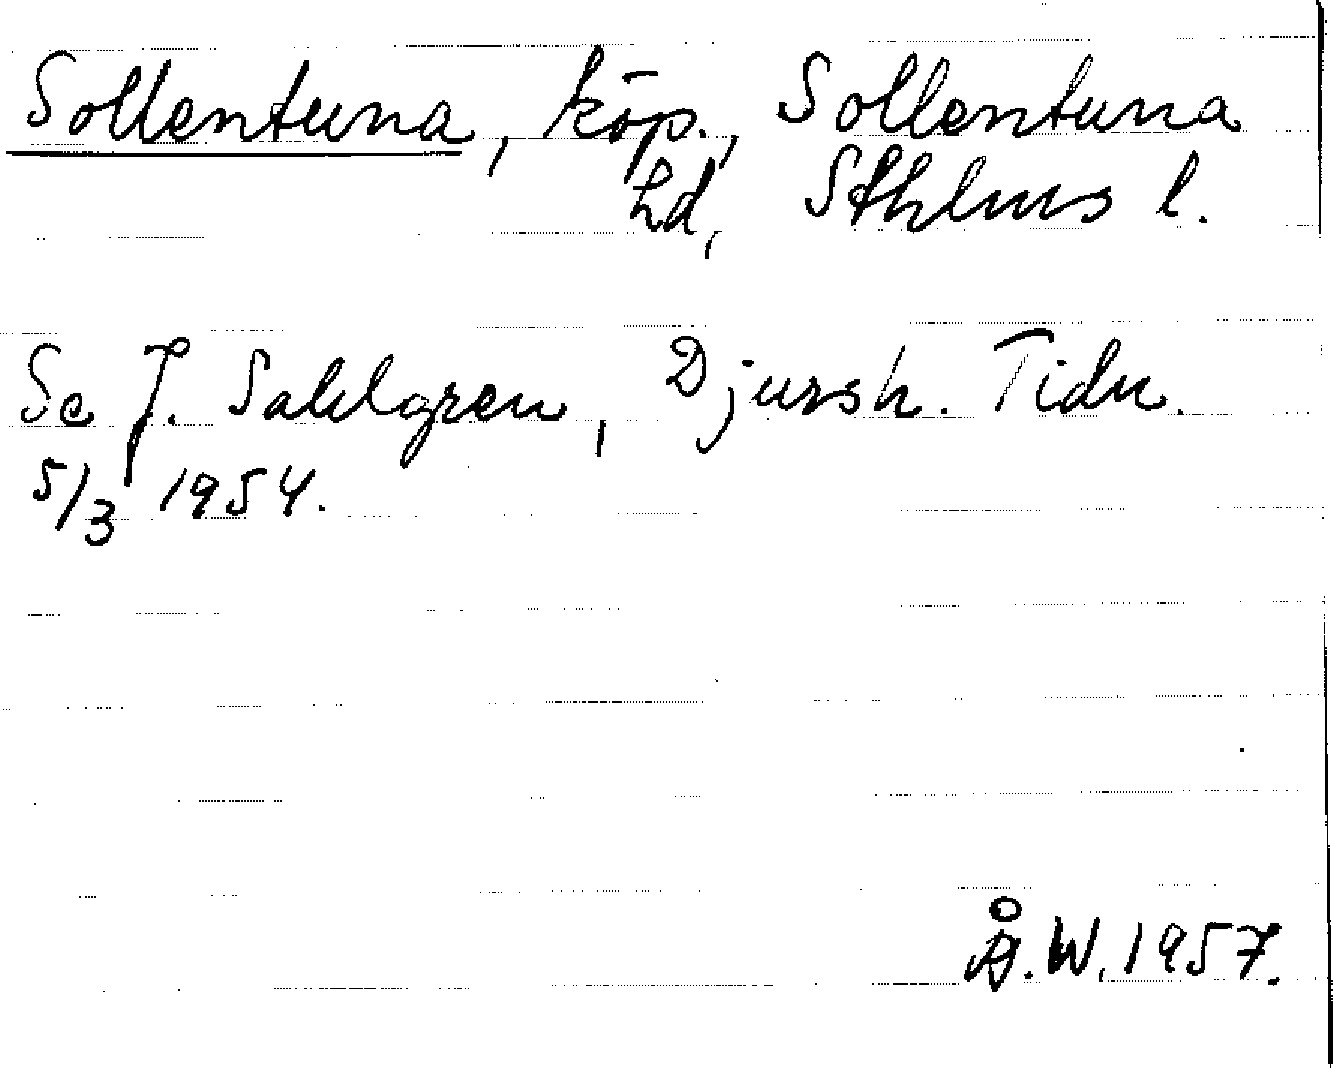 Sollentuna, köp., Sollentuna
hd, Sthlms l.
Se J. Sahlgren, Djursh. Tidn.
5/3 1954.
Å.W. 1957.